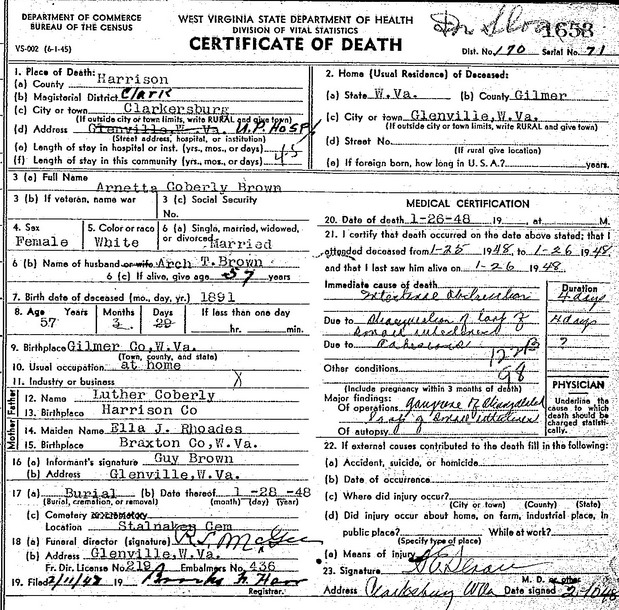 DEPARTMENT OF COMMERCE
BUREAU OF THE CENSUS
VS-002 (6-1-45)
WEST VIRGINIA STATE DEPARTMENT OF HEALTH
DIVISION OF VITAL STATISTICS
CERTIFICATE OF DEATH
Dr Sloan 1658
Dist. No. 170 Serial No. 71
1. Place of Death:
(a) County Harrison
(b) Magisterial District Clark
(c) City or town Clarksburg
(If outside city or town limits, write RURAL and give town)
(d) Address Glenville, W. Va. U.P. Hosp
(Street address, hospital, or institution)
(e) Length of stay in hospital or inst. (yrs., mos., or days)
(f) Length of stay in this community (yrs., mos., or days)
2. Home (Usual Residence) of Deceased:
(a) State W.Va. (b) County Gilmer
(c) City or town Glenville, W.Va.
(If outside city or town limits, write RURAL and give town)
(d) Street No.
(If rural give location)
(e) If foreign born, how long in U.S.A.? years.
3 (a) Full Name
Arnetta Coberly Brown
3 (b) If veteran, name war
3 (c) Social Security
No.
4. Sex
Female
5. Color or race
White
6 (a) Single, married, widowed,
or divorced Married
6 (b) Name of husband or wife Arch T. Brown
6 (c) If alive, give age 57 years
7. Birth date of deceased (mo., day, yr.) 1891
8. Age Years Months Days If less than one day
57 3 29 hr. min.
9. Birthplace Gilmer Co, W.Va.
(Town, county, and state)
10. Usual occupation at home
11. Industry or business X
Father
12. Name Luther Coberly
13. Birthplace Harrison Co
Mother
14. Maiden Name Ella J. Rhoades
15. Birthplace Braxton Co, W.Va.
16 (a) Informant's signature Guy Brown
(b) Address Glenville, W.Va.
17 (a) Burial (b) Date thereof 1-28-48
(Burial, cremation, or removal) (month) (day) (year)
(c) Cemetery or crematory
Location Stalnaker Cem
18 (a) Funeral director (signature) R.S. McGee
(b) Address Glenville, W.Va.
Fr. Dir. License No. 219 Embalmers No. 436
19. Filed 2/11/48 19
Registrar.
MEDICAL CERTIFICATION
20. Date of death 1-26-48 19 , at M.
21. I certify that death occurred on the date above stated; that I
attended deceased from 1-25 1948, to 1-26 1948
and that I last saw him alive on 1-26 1948.
Immediate cause of death Duration
Intestinal Obstruction 4 days
Due to Strangulation of loop of 4 days
small intestines
Due to Adhesions ?
122B
Other conditions 98
(Include pregnancy within 3 months of death)
Major findings:
Of operations gangrene of strangulated
loop of small intestines
Of autopsy
PHYSICIAN
Underline the
cause to which
death should be
charged statisti-
cally.
22. If external causes contributed to the death fill in the following:
(a) Accident, suicide, or homicide
(b) Date of occurrence
(c) Where did injury occur?
(City or town) (County) (State)
(d) Did injury occur about home, on farm, industrial place, in
public place? While at work?
(Specify type of place)
(e) Means of injury
23. Signature Sloan
M. D. or other
Address Clarksburg W Va Date signed